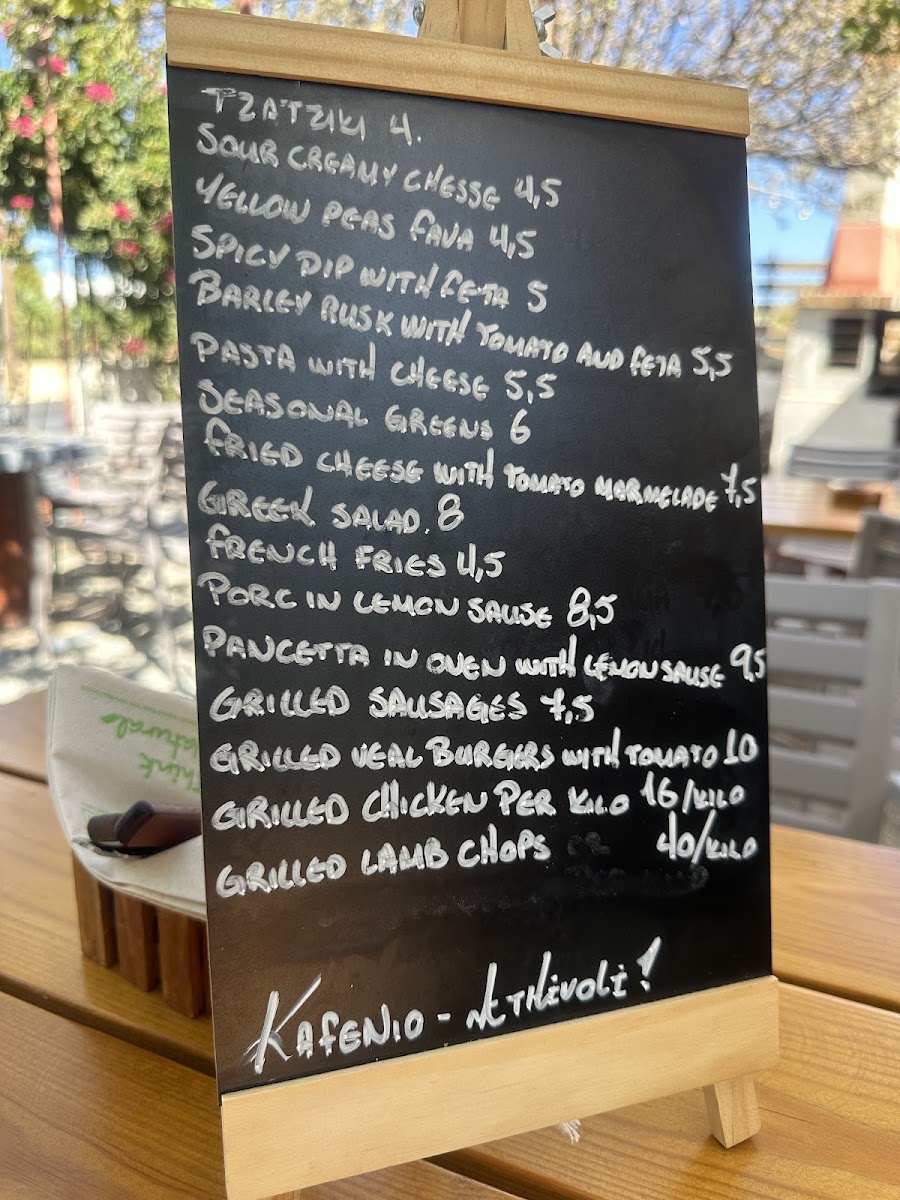 TZATZIKI 4.
SOUR CREAMY CHESSE 4,5
YELLOW PEAS FAVA 4,5
SPICY DIP WITH FETA 5
BARLEY RUSK WITH TOMATO AND FETA 5,5
PASTA WITH CHEESE 5,5
SEASONAL GREENS 6
FRIED CHEESE WITH TOMATO MARMELADE 7,5
GREEK SALAD. 8
FRENCH FRIES 4,5
PORC IN LEMON SAUSE 8,5
PANCETTA IN OVEN WITH LEMON SAUSE 9,5
GRILLED SAUSAGES 7,5
GRILLED VEAL BURGERS WITH TOMATO 10
GRILLED CHICKEN PER KILO 16/KILO
GRILLED LAMB CHOPS 40/KILO
KAFENIO - ATHIVOLI!
think
natural